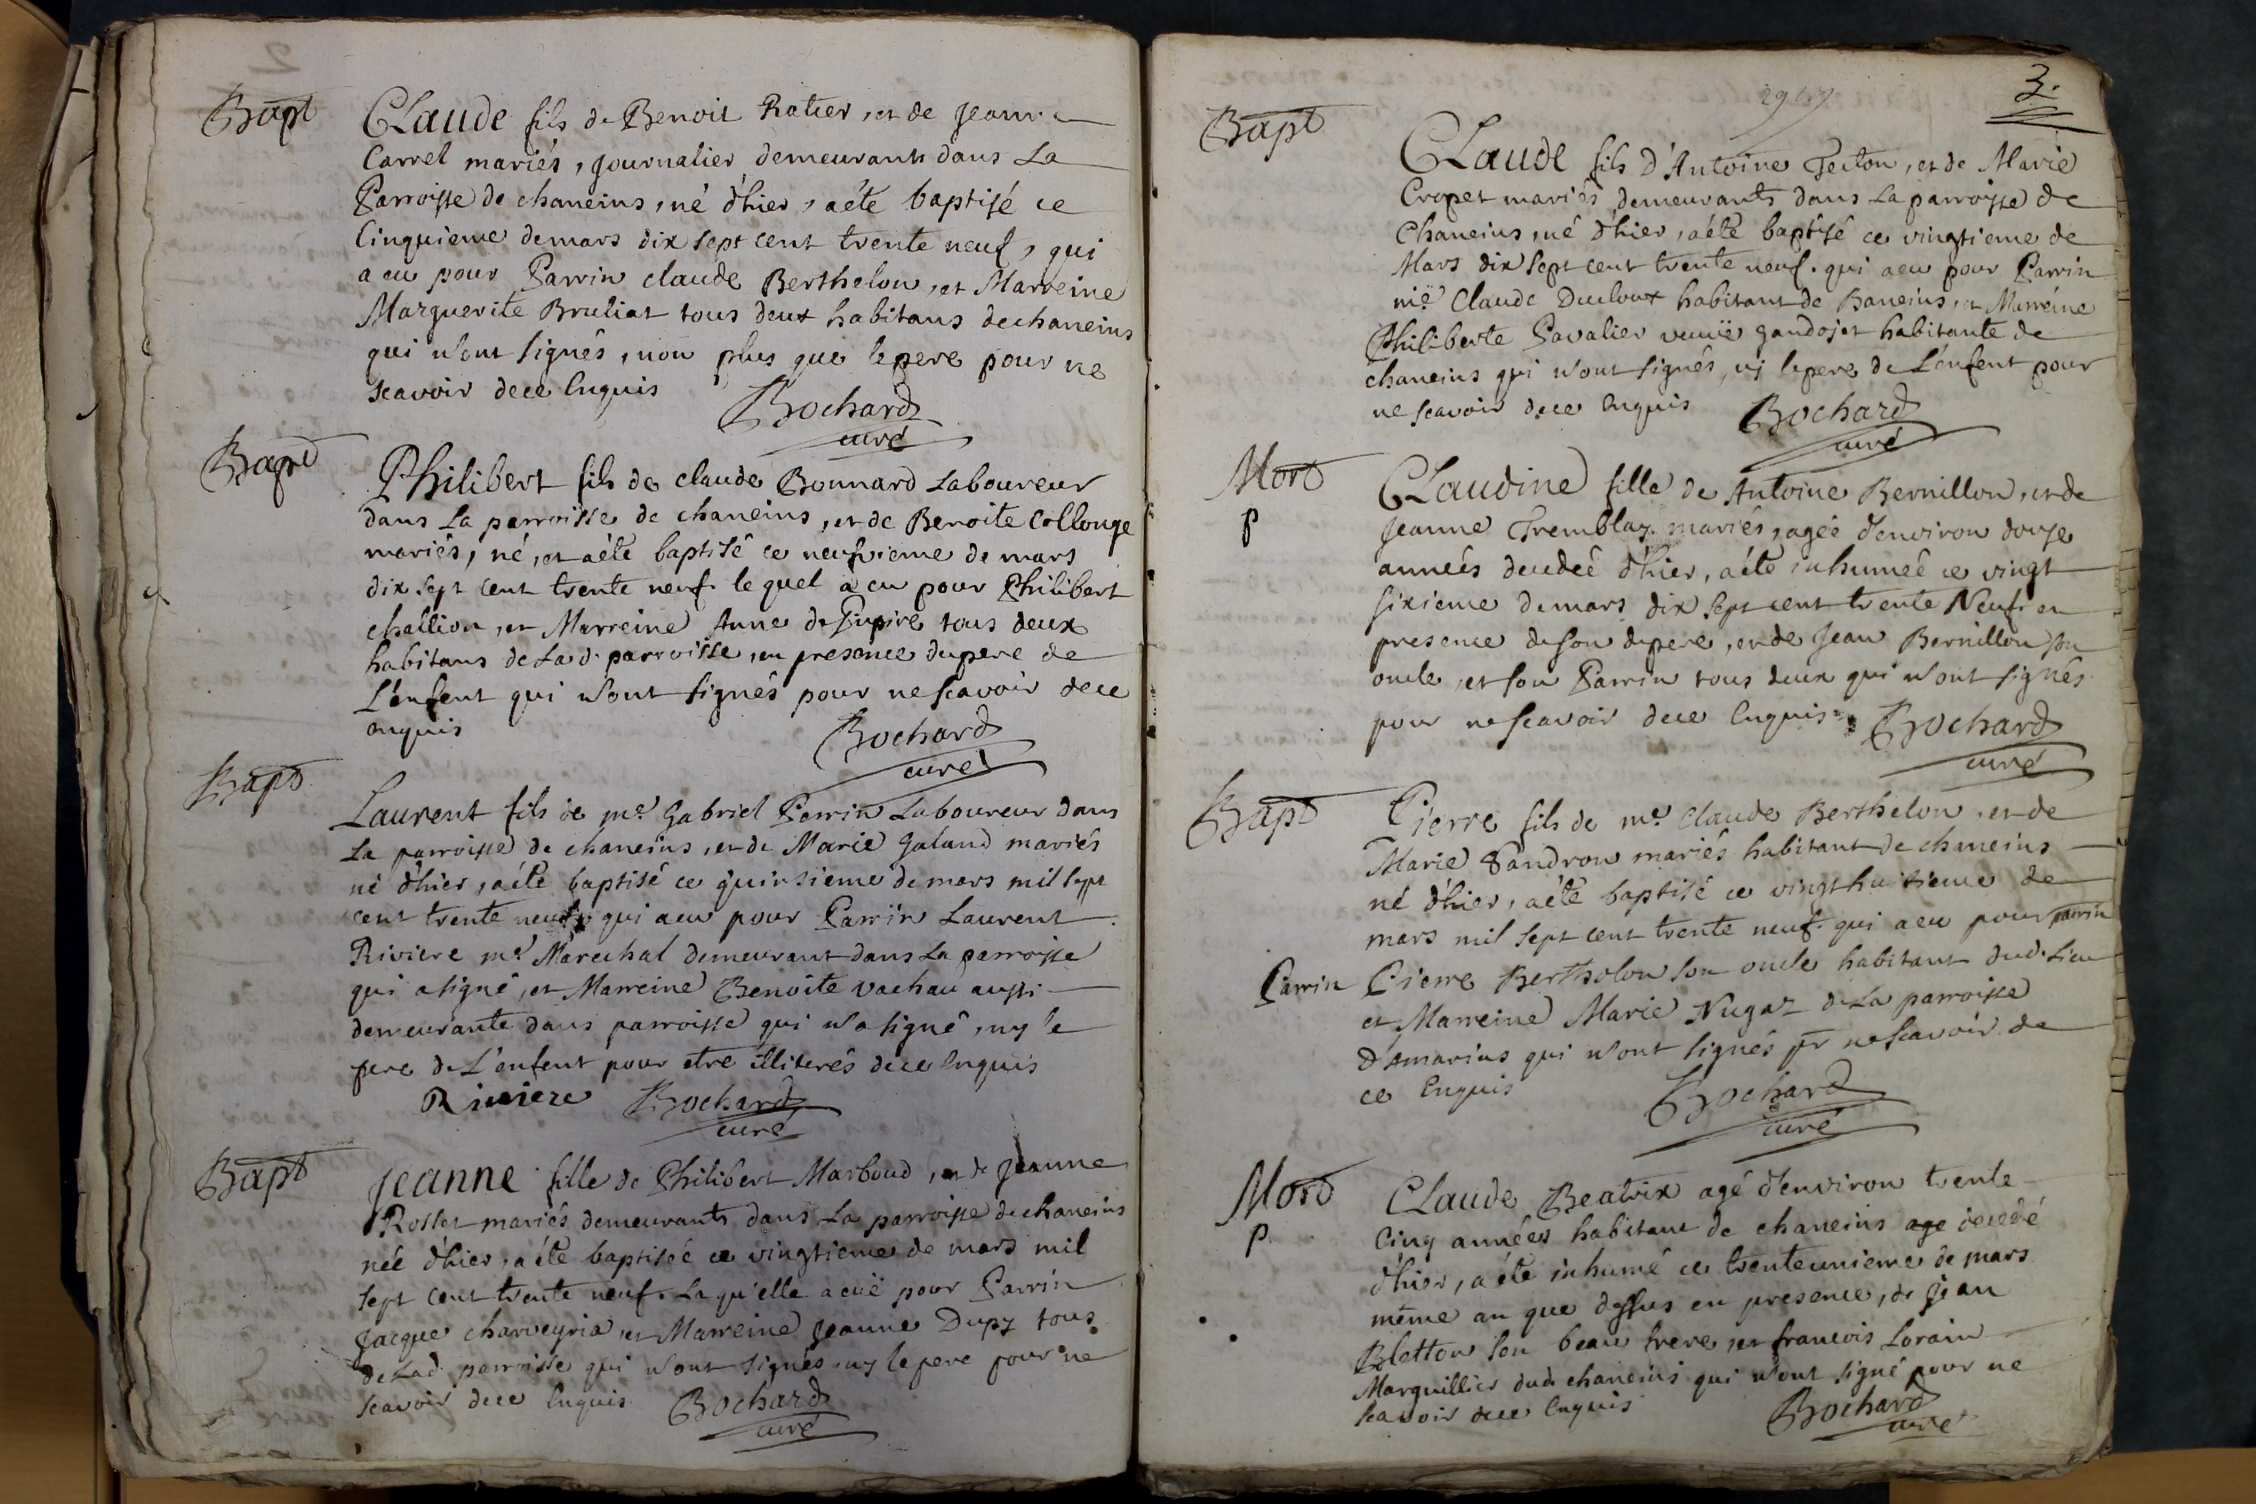 Bapt
CLaude fils de Benoit Ratier, et de Jeanne
Carrel mariés, journalier demeurants dans La
Parroisse de chaneins, né d'hier, aété baptisé ce
Cinquieme de mars dix sept cent trente neuf, qui
a eu pour Parrin claude Berthelon, et Marreine
Marguerite Bruliat tous deux habitans de chaneins
qui n'ont signés, non plus que le pere pour ne
scavoir de ce Enquis
Bochard
curé
Bapt
Philibert fils de claude Bonnard Laboureur
dans La parroisse de chaneins, et de Benoite Collonge
mariés, né, et aété baptisé ce neufvieme de mars
dix sept cent trente neuf. le quel a eu pour Philibert
challion, et Marreine Anne de tous deux
habitans de La d. parroisse, en presence du pere de
L'enfent qui n'ont signés pour ne scavoir de ce
enquis
Bochard
curé
Bapt
Laurent fils de me. Gabriel Perrin Laboureur dans
La parroisse de chaneins, et de Marie Galand mariés
né d'hier, aété baptisé ce quinsieme de mars mil sept
cent trente neuf, qui a eu pour Parrin Laurent
Riviere me. Marechal demeurant dans La parroisse
qui a signé, et Marreine Benoite vachau aussi
demeurante dans parroisse qui n'a signé, ny le
pere de L'enfent pour etre illiterés de ce Enquis
Riviere Bochard
curé
Bapt
Jeanne fille de Philibert Marboud, et de Jeanne
Rosset mariés demeurants dans La parroisse de chaneins
née d'hier, a été baptisée ce vingtieme de mars mil
sept cent trente neuf. La qu'elle a eüe pour Parrin
Jacque charveyria, et Marreine Jeanne Dupy tous
de Lad. parroisse qui n'ont signés, ny le pere pour ne
scavoir de ce Enquis
Bochard
curé
3.
Bapt
CLaude fils d'Antoine Tecton, et de Marie
Cropet mariés demeurants dans La parroisse de
Chaneins, né d'hier, aété baptisé ce vingtieme de
Mars dix sept cent trente neuf. qui a eu pour Parrin
me. Claude Ducloux habitant de Baneins, et Marreine
Philiberte Savalier veuve Gandojet habitante de
chaneins qui n'ont signés, nj le pere de L'enfent pour
ne scavoir de ce Enquis
Bochard
curé
Mort
p
CLaudine fille de Antoine Bernillon, et de
Jeanne Tremblay mariés, agée d'environ douse
années decedeé d'hier, aété inhumeé ce vingt
sixieme de mars dix sept cent trente Neuf. en
presence de son dipere, et de Jean Bernillon son
oncle, et son Parrin tous deux qui n'ont signés
pour ne scavoir de ce Enquis
Bochard
curé
Bapt
Pierre fils de me. Claude Berthelon, et de
Marie Sandron mariés habitant de chaneins
né d'hier, aété baptisé ce vingt huitieme de
mars mil sept cent trente neuf. qui a eu pour parrin
Parrin Pierre Bertholon son oncle habitant dud. Lieu
et Marreine Marie Nugaz de La parroisse
d'Amarins qui n'ont signés pr ne scavoir de
ce Enquis
Bochard
curé
Mort
p.
CLaude Beatrix agé d'environ trente
Cinq années habitant de chaneins age decedé
d'hier, a été inhumé ce trente unieme de mars
même an que dessus en presence, de Jean
Bletton son beau frere, et francois Lorain
Marguillier dud. chaneins qui n'ont signé pour ne
scavoir de ce Enquis
Bochard
curé